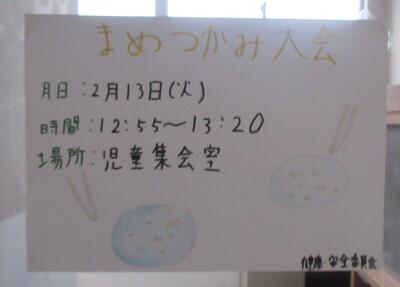 まめつかみ大会
月日:2月13日(火)
時間:12:55～13:20
場所:児童集会室
健康・安全委員会